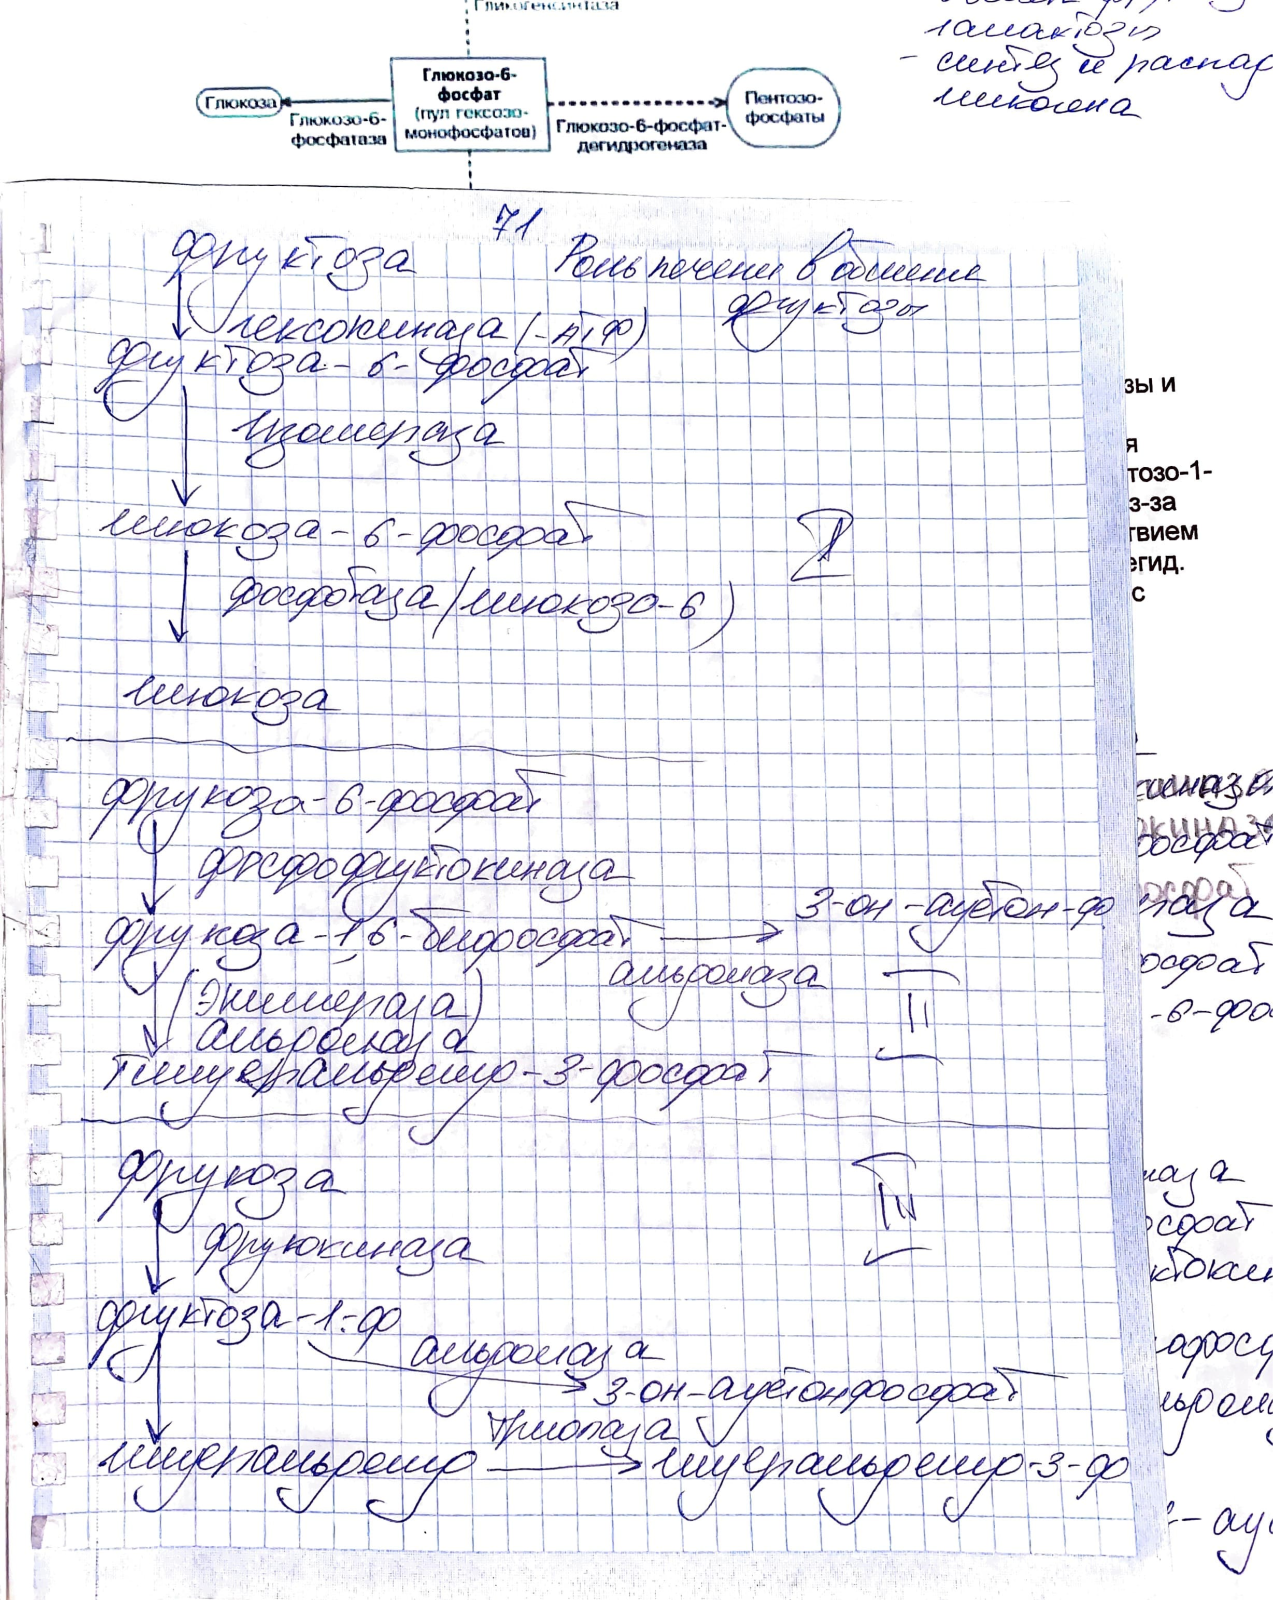 Гликогенсинтаза
галактозы
- синтез и распад
гликогена
Глюкоза
Глюкозо-6-
фосфатаза
Глюкозо-6-
фосфат
(пул гексозо-
монофосфатов)
Глюкозо-6-фосфат-
дегидрогеназа
Пентозо-
фосфаты
71
фруктоза Роль печени в обмене
фруктозы
гексокиназа (-АТФ)
фруктоза-6-фосфат
изомераза
глюкоза-6-фосфат
I
фосфотаза (глюкозо-6)
глюкоза
фрукоза-6-фосфат
фосфофруктокиназа
3-он-ацетон-ф
фрукоза-1,6-бифосфат
альдолаза
(эпимераза)
II
альдолаза
Глицеральдегид-3-фосфат
фрукоза
III
фруюкиназа
фруктоза-1-ф
альдолаза
3-он-ацетонфосфат
триолаза
глицеральдегид глицеральдегид-3-ф
зы и
я
тозо-1-
з-за
твием
егид.
с
осфат
-6-фос